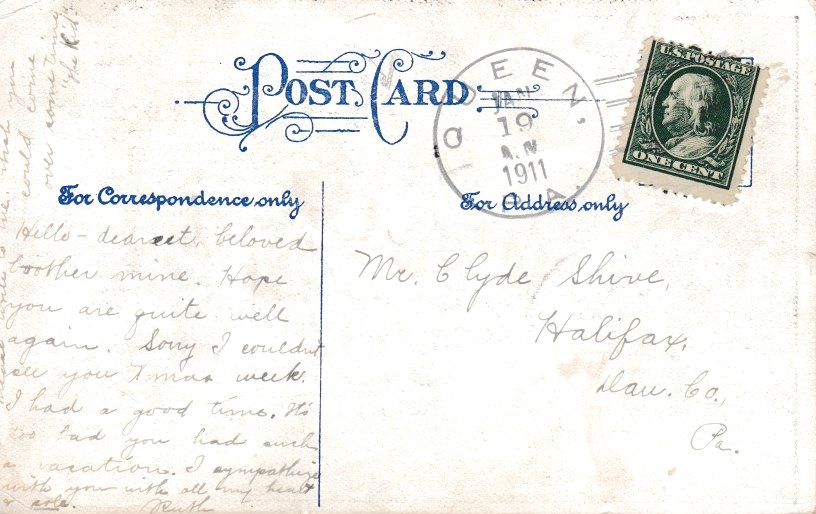 POST CARD
QUEEN,
JAN
19
A.M
1911
PA.
U.S. POSTAGE
ONE CENT
For Correspondence only
For Address only
Hello - dearest, beloved
brother mine. Hope
you are quite well
again. Sorry I couldn't
see you Xmas week.
I had a good time. It's
too bad you had such
a vacation. I sympathize
with you with all my heart
& sole.
Ruth
write to me. Wish you
could come
over some time
"The Kid"
Mr. Clyde Shive,
Halifax,
Dau. Co.,
Pa.